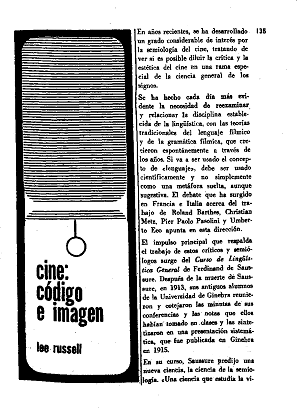 cine:
código
e imagen
lee russell
135
En años recientes, se ha desarrollado
un grado considerable de interés por
la semiología del cine, tratando de
ver si es posible diluir la crítica y la
estética del cine en una rama espe-
cial de la ciencia general de los
signos.
Se ha hecho cada día más evi-
dente la necesidad de reexaminar
y relacionar la disciplina estable-
cida de la lingüística, con las teorías
tradicionales del lenguaje fílmico
y de la gramática fílmica, que cre-
cieron espontáneamente a través de
los años. Si va a ser usado el concep-
to de «lenguaje», debe ser usado
científicamente y no simplemente
como una metáfora suelta, aunque
sugestiva. El debate que ha surgido
en Francia e Italia acerca del tra-
bajo de Roland Barthes, Christian
Metz, Pier Paolo Pasolini y Umber-
to Eco apunta en esta dirección.
El impulso principal que respalda
el trabajo de estos críticos y semió-
logos surge del Curso de Lingüís-
tica General de Ferdinand de Saus-
sure. Después de la muerte de Saus-
sure, en 1913, sus antiguos alumnos
de la Universidad de Ginebra reunie-
ron y cotejaron las minutas de sus
conferencias y las notas que ellos
habían tomado en clases y las sinte-
tizaron en una presentación sistemá-
tica, que fue publicada en Ginebra
en 1915.
En su curso, Saussure predijo una
nueva ciencia, la ciencia de la semio-
logía. «Una ciencia que estudia la vi-